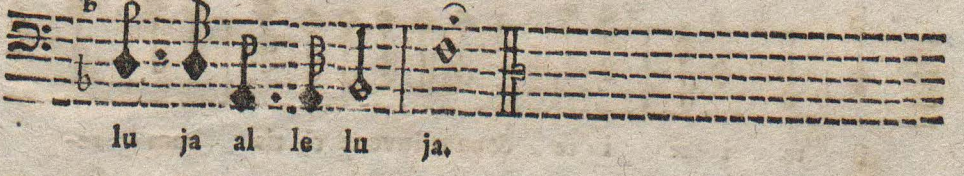 lu ja al le lu ja.